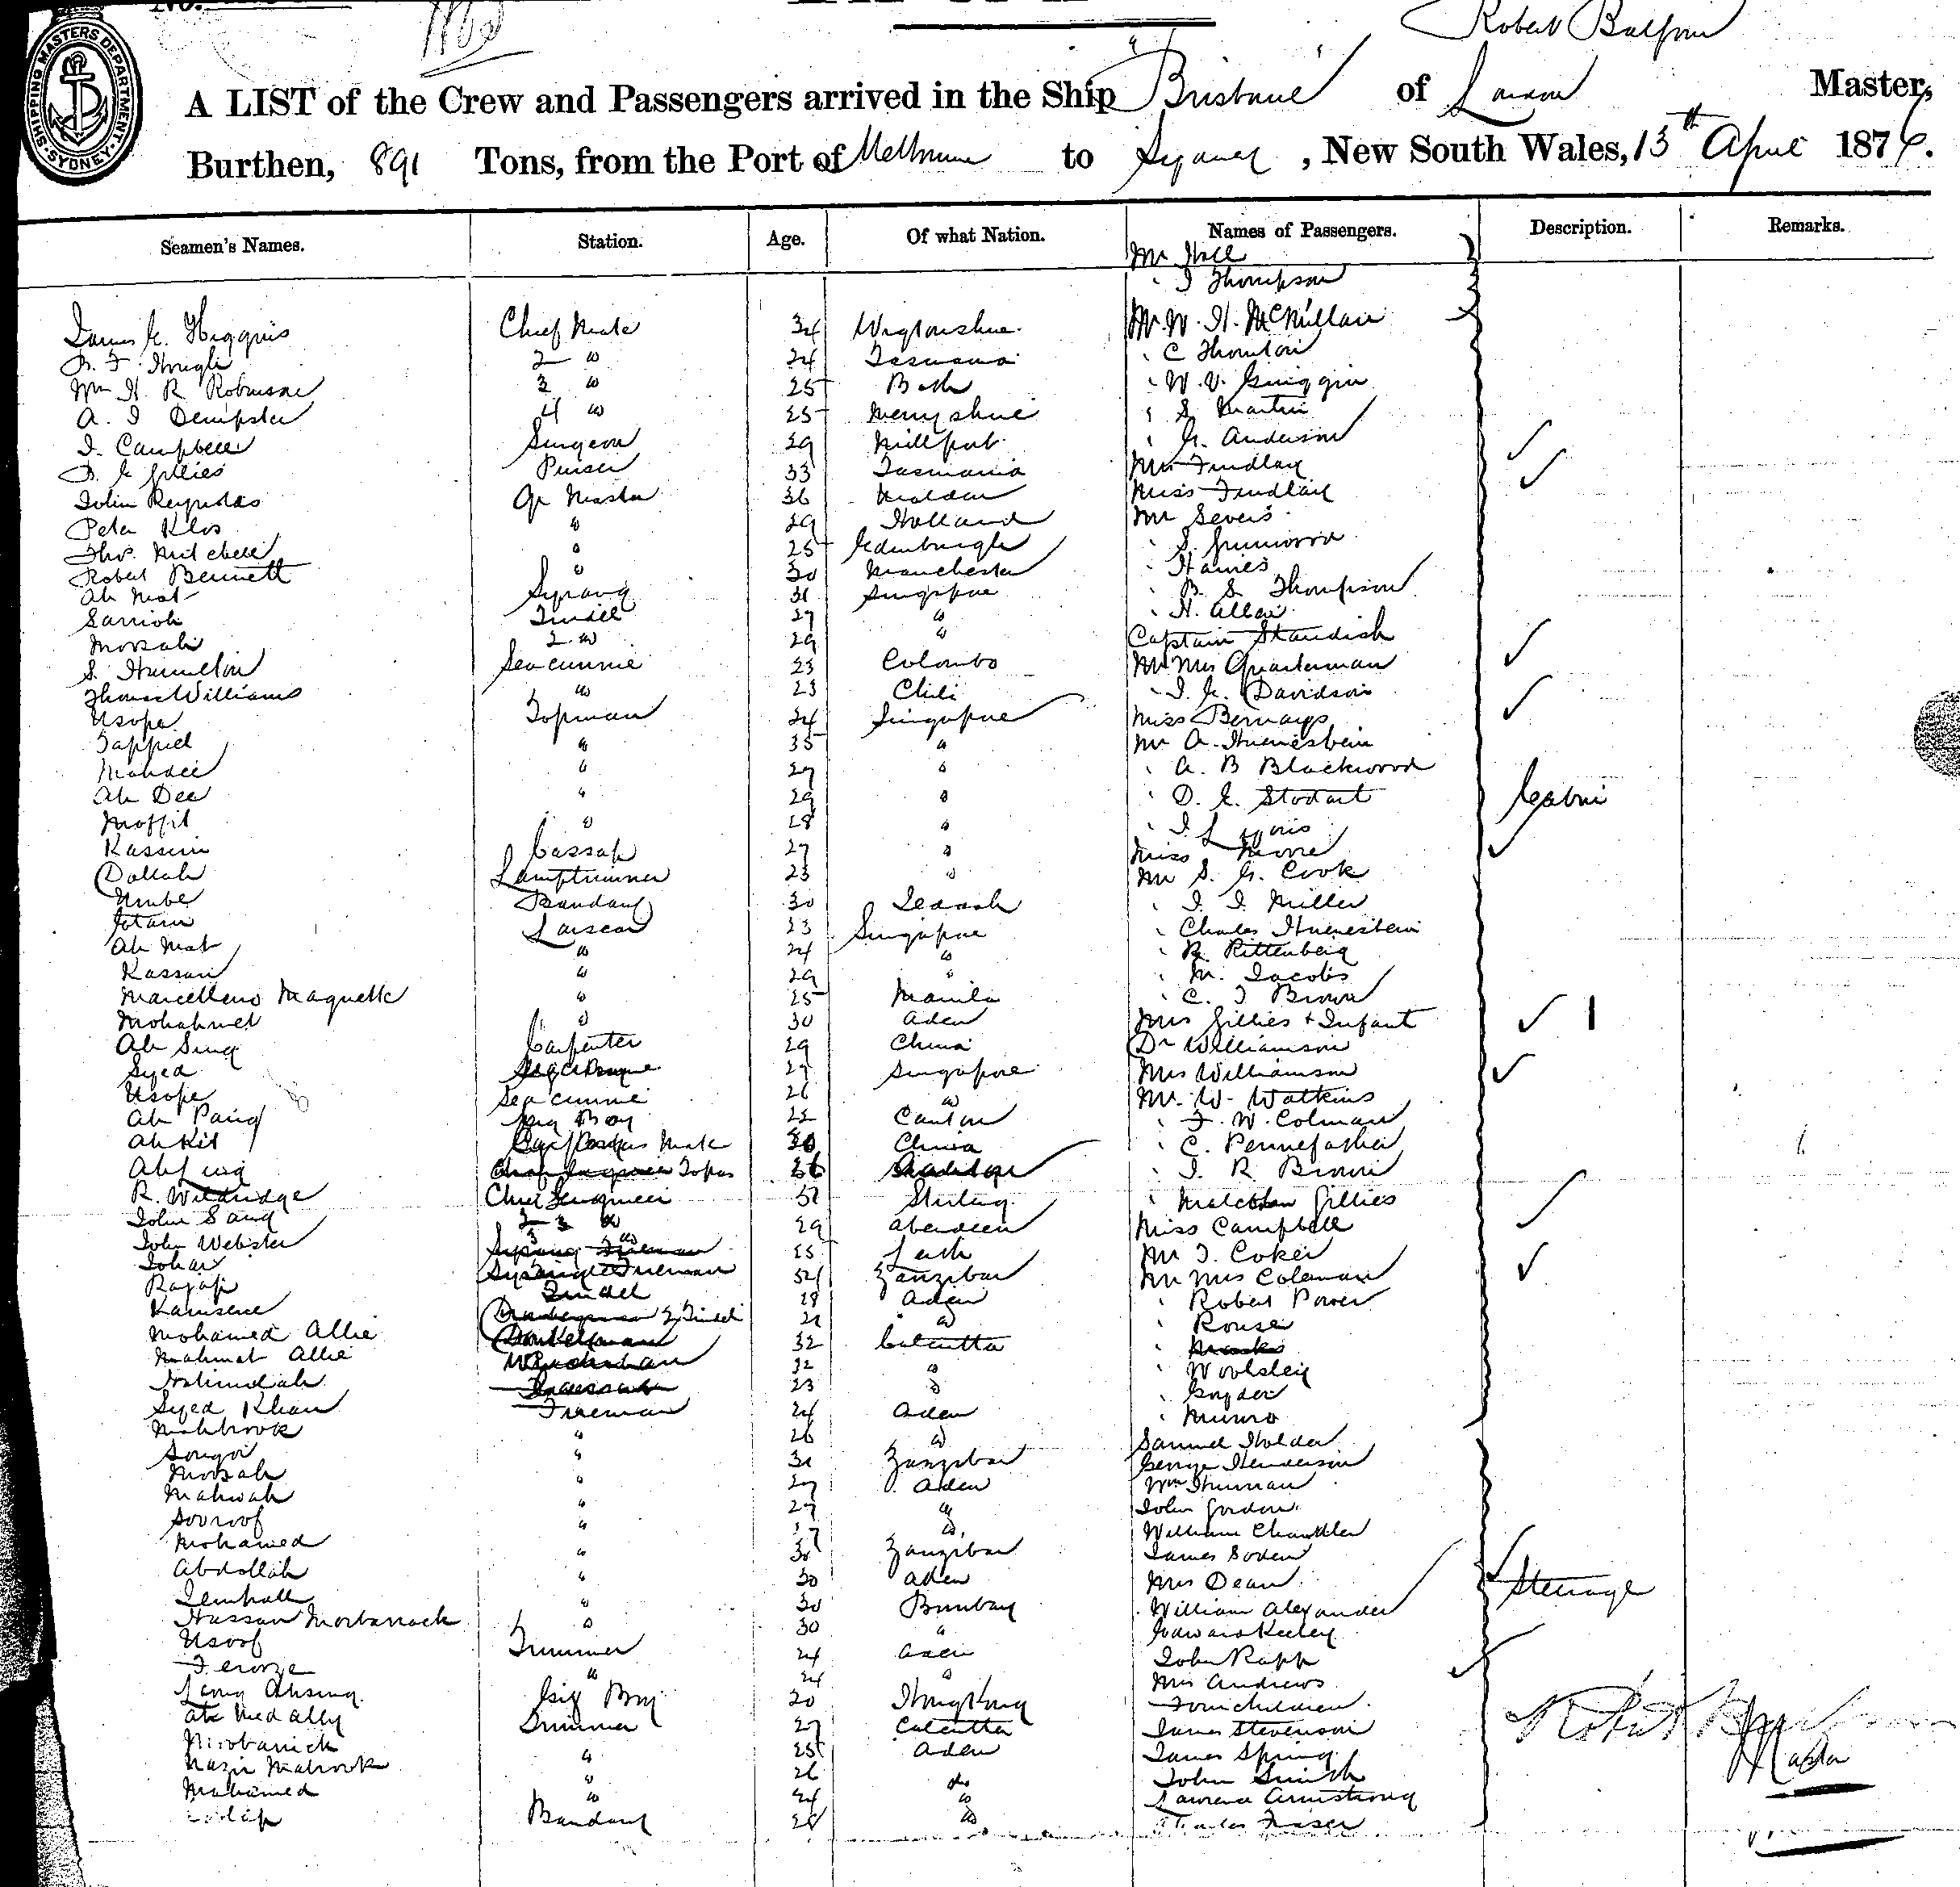 No.
SHIPPING MASTERS DEPARTMENT SYDNEY
Robert Balfour
A LIST of the Crew and Passengers arrived in the Ship "Brisbane" of London Master,
Burthen, 891 Tons, from the Port of Melbourne to Sydney, New South Wales, 13th April 1876.
Seamen's Names. Station. Age. Of what Nation. Names of Passengers. Description. Remarks.
Mr Hall
" J Thompson
James Higgins Chief Mate 34 Wigtonshire Mr. W. H. McMillan
2 " 24 Tasmania " C Thornton
Wm H. R Robinson 3 " 25 Both " W. V.
A. J Dempster 4 " 25 " S. Martin
J. Campbell Surgeon 29 Millport " G. Anderson
Gillies Purser 33 Tasmania Mr Findlay
John Reynolds Qr Master 36 Maldon Miss Findlay
Peter Klos " 29 Holland Mr Severs
Thos. Mitchell " 25 Edinburgh " S. Greenwood
Robert Bennett " 30 Manchester " Haines
Ah Mat Syrang 31 Singapore " B. S. Thompson
Sarrioh Tindel 27 " " H. Allan
Mossah 2 " 29 " Captain Standish
S. Hamilton Seacunnie 23 Colombo Mr Mrs Quarterman
Thomas Williams " 23 Chili " J. E. Davidson
Usope Topman 24 Singapore Miss Bernays
Tappiel " 35 " Mr A. Huenesbein
Mahdee " 27 " " A. B Blackwood
Ah Dee " 29 " " D. E. Stodart Cabin
Moffit " 28 " " J. Lyons
Kassim Cassap 27 " Miss Moore
Dollah Lamptrimmer 23 " Mr S. G. Cook
Umbe Bandary 30 " J. J. Miller
Lascar 23 Singapore " Charles Huenesbein
Ah Mat " 24 " " R. Rittenberg
Kassan " 29 " " M. Jacobs
Marcelleno Maquelle " 25 Manila " C. J Brown
Mohahmet " 30 Aden Mrs Gillies + Infant
Ah Sing Carpenter 29 China Dr Williamson
Syed 27 Singapore Mrs Williamson
Usope Sea cunnie 26 " Mr W. Watkins
Ah Pang Boy 22 Canton " F. W. Colman
Ah Kit Mate 30 China " C. Pennefather
Topas 36 " J. R Brown
R. Wildridge Chief Engineer 37 Stirling " Malcolm Gillies
John Sang 2 " 29 Aberdeen Miss Campbell
John Webster 3 " 25 Leith Mr J. Coker
Johar Syrang Fireman Zanzibar Mr Mrs Coleman
Rajap Tindel 28 Aden " Robert Power
Kamsene 2 Tindel " " Rouse
Mohamed Allie 32 Calcutta
Mahmat Allie 32 " " Woolsley
23 " " Goyder
Syed Khan Fireman 24 Aden " Munro
Mahbrook " 26 " Samuel Holden
Songor " Zanzibar George Henderson
Mossah " 27 Aden Wm
Mahwah " 27 " John Gordon
Sooroof " " William Chandler
Mohamed " Zanzibar James Soden
Abdollah " 30 Aden Mrs Dean Steerage
" 30 Bombay William Alexander
Hassan Morbarrack " 30 " Edward Keeley
Usoof Trimmer 24 Aden John Rapp
Feroze " 24 " Mrs Andrews
Ahsing Boy 20 Hong Kong Four children
Trimmer 27 Calcutta James Stevenson
" 25 Aden James Spring
Mabrook " 26 " John Smith
Mahamed " 24 " Lawrence Armstrong
Bandary 28 " Charles Fraser
Robert Balfour
Master